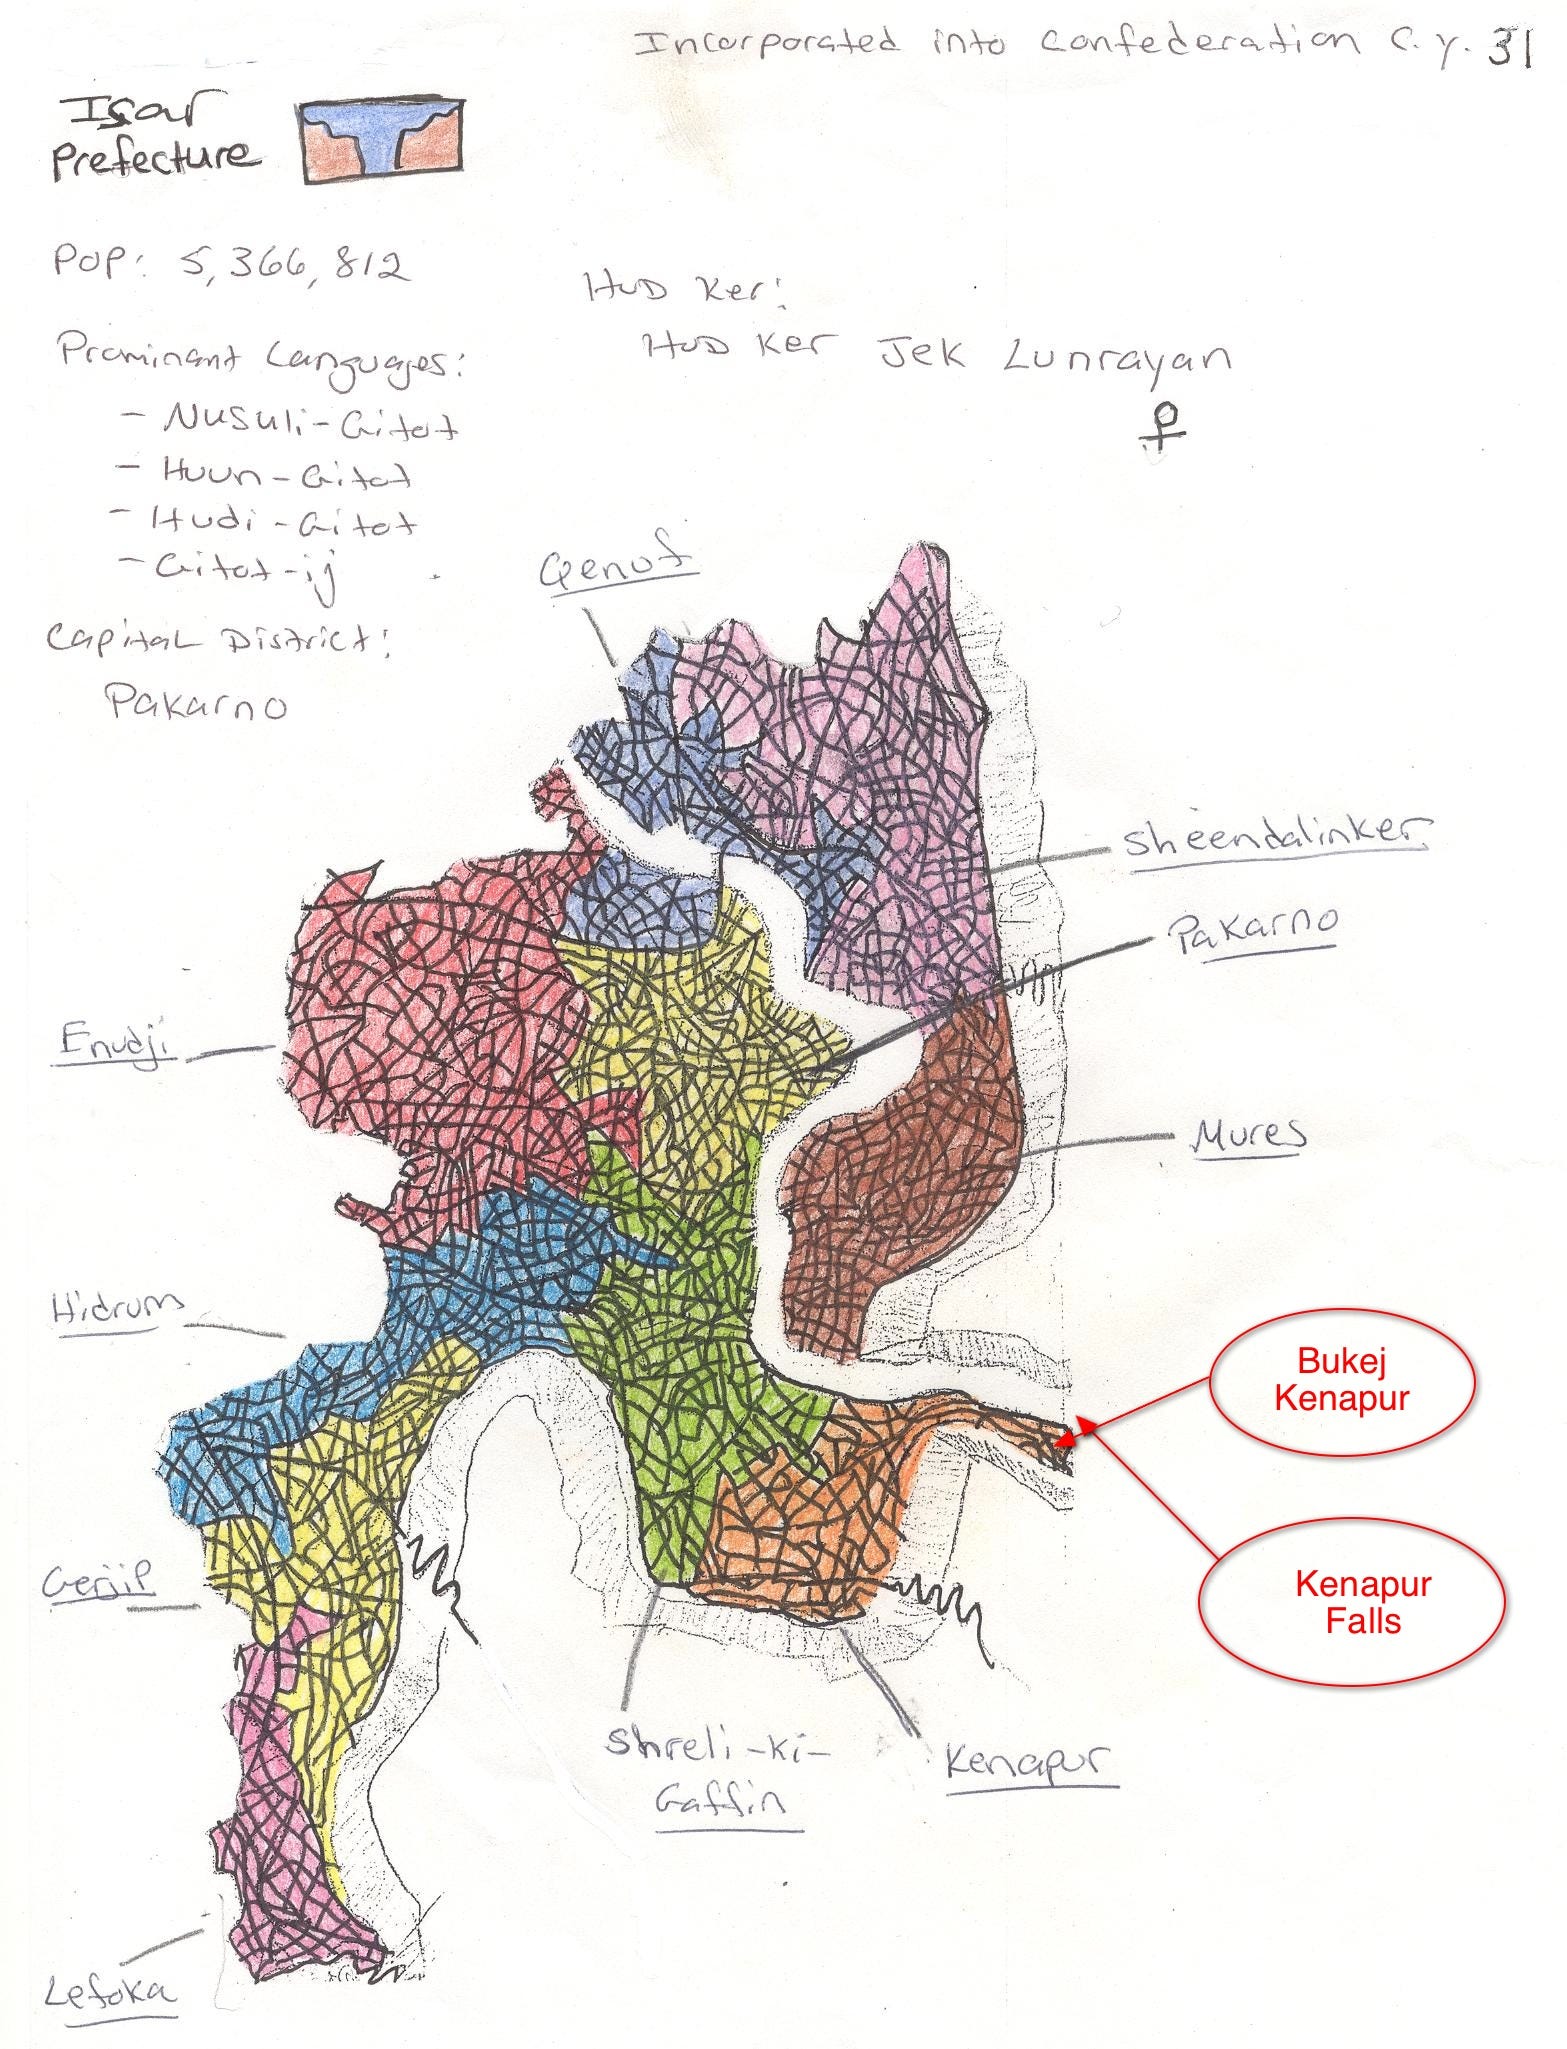 Incorporated into Confederation C.Y. 31
Isar
Prefecture
Pop: 5,366,812
Hud Ker:
Hud Ker Jek Lunrayan
♀
Prominant Languages:
- Nusuli-Gitot
- Huun-Gitot
- Hudi-Gitot
- Gitot-ij
Capital District:
Pakarno
Qenuf
Sheendalinker
Pakarno
Enudji
Mures
Hidrum
Bukej
Kenapur
Kenapur
Falls
Gerjil
Shreli-ki-
Gaffin
Kenapur
Lefoka